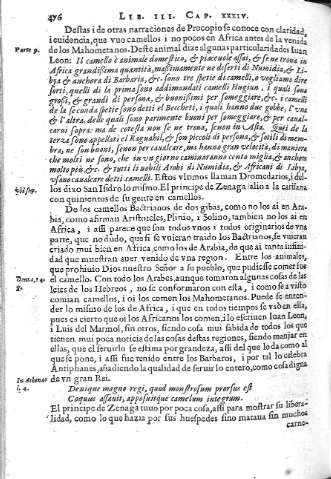 476 LIB. III. CAP. XXXIV.
Destas i de otras narraciones de Procopio se conoce con claridad,
i evidencia, que vuo camellos i no pocos en Africa antes de la venida
Parte p. de los Mahometanos. Deste animal dize algunas particularidades Iuan
Leon: Il camelo è animale domestico, & piaceuole assai, & se ne troua in
Africa grandissima quantità, massimamente ne diserti di Numidia, & Li-
bia & anchora di Barberia, &c. sono tre spetie di camelli, o vogliamo dire
sorti, quelli di la prima sono addimandati camelli Hugiun, i quali sono
grossi, & grandi di persona, & buonissimi per someggiare, &c. i camelli
de la seconda spetie sono detti el Becheti, i quali hanno due gobbe, l'vna
& l'altra, delle quali sono parimente buoni per someggiare, & per caual-
carui sopra: ma de cotesta non se ne troua, senon in Asia. Quei de la
terza sono appellati el Raguahil, & son piccoli di persona, & sotili di mem-
bra, ne son buoni, senon per caualcare, ma hanno gran velocità, di maniera
che molti ne sono, che in vn giorno caminaranno cento miglia, & anchen
molto più, &c. & tutti i nobili Arabi di Numidia, & Africani di Libia
vsano caualcare detti camelli. Estos vltimos llaman Dromedarios, i del-
los dixo San Isidro lo mismo. El principe de Zenaga salio a la
con quinientos de su gente en camellos.
De los camellos Bactrianos de dos gibas, como no los ai en Ara-
bia, como afirman Aristoteles, Plinio, i Solino, tambien no los ai en
Africa, i assi parece que son todos vnos i todos originarios de vna
parte, que no dudo, que si se vuieran traido los Bactrianos, se vuieran
criado mui bien en Africa, como los de Arabia, de que ai tanta infini-
dad que muestran auer venido de vna region. Entre los animales,
que prohiuio Dios nuestro Señor a su pueblo, que pudiesse comer fue
el camello. Con todo los Arabes, aunque tomaron algunas cosas de las
leies de los Hebreos, no se conformaron con ella, i como se a visto
comian camellos, i oi los comen los Mahometanos. Puede se enten-
der lo mismo de los de Africa, i que en todos tiempos se vsò en ella,
pues es cierto que oi los Africanos los comen, i lo escriuen Iuan Leon,
i Luis del Marmol, sin otros, siendo cosa mui sabida de todos los que
tienen mui poca noticia de las cosas destas regiones, siendo manjar en
ellas, que el seruirlo se estima por grandeza, assi del que lo da como al
que se pone, i assi fue tenido entre los Barbaros, i por tal lo celebra
Antiphanes, añadiendo la qualidad de seruir lo entero, como cosa digna
de vn gran Rei.
Denique magno regi, quod monstrosum prorsus est
Coquus assauit, apposuitque camelum integrum.
El principe de Zenaga tuuo por poca cosa, assi para mostrar su libera-
lidad, como lo que hazia por sus huespedes sino mataua sin muchos
carne-